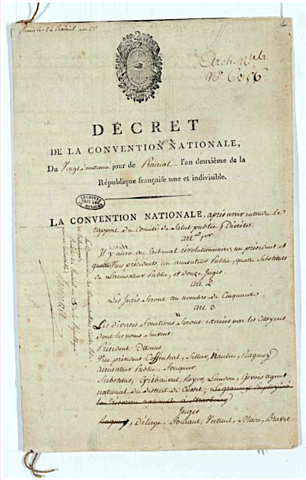 DÉCRET
DE LA CONVENTION NATIONALE,
Du Vingt deuxieme jour de Prairial l'an deuxième de la
République française une et indivisible.
LA CONVENTION NATIONALE, après avoir entendu le
rapport du Comité de Salut public, Décrète
art 1er
Il y aura au Tribunal révolutionnaire un président et
quatre Vice présidents, un accusateur Public, quatre Substituts
de l'accusateur Public, et douze Juges
art 2
Les Jurés seront au nombre de Cinquante
art 3
Les Diverses fonctions seront exercées par les Citoyens
dont les noms suivent:
Président Dumas
Vice président Coffinhal, Sellier, Naulin, Ragmey
accusateur Public, Fouquier
Substituts, Grebauval, Royer, Liendon, Givois agent
national du district de Cusset,
Juges
Deliege, Foucaut, Verteuil, Maire, Bravet